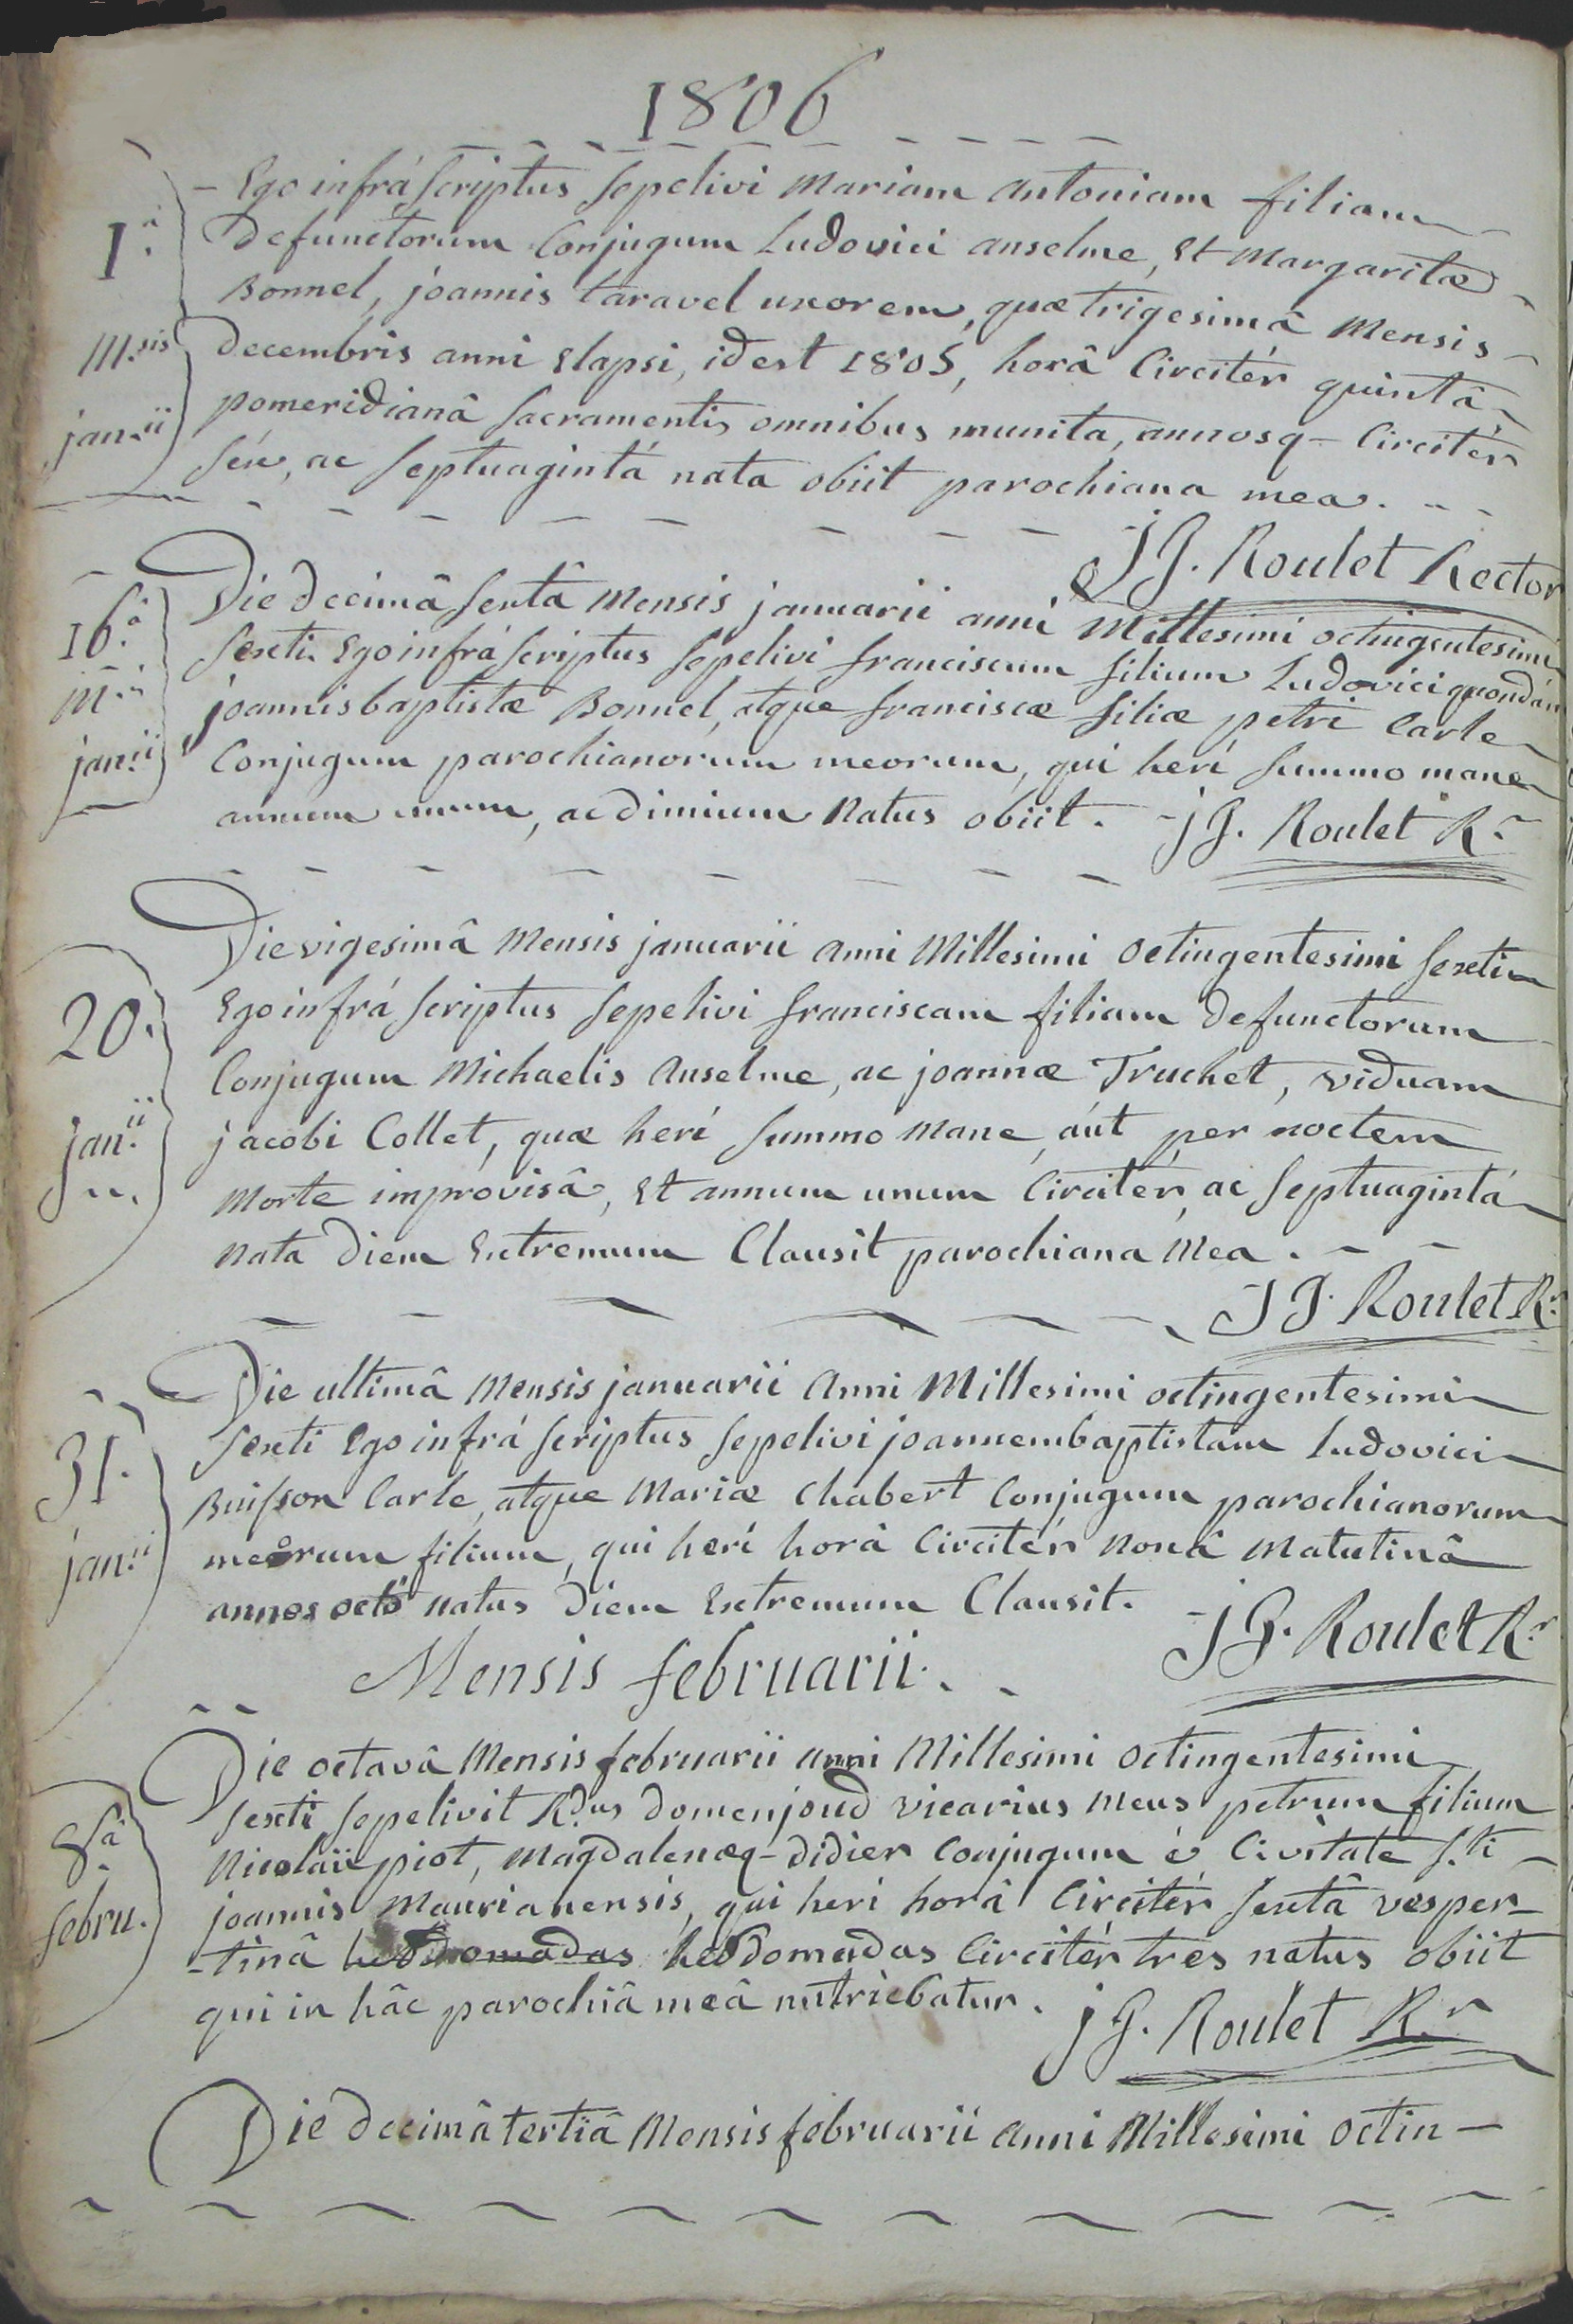 1806
1.â
M.sis
jan.ii
- Ego infrá scriptus sepelivi Mariam antoniam filiam
defunctorum Conjugum Ludovici anselme, Et Margaritæ
Bonnel, joannis taravel uxorem, quæ trigesimâ Mensis
decembris anni Elapsi, id est 1805, horâ Circitér quintâ
pomeridianâ sacramentis omnibus munita, annosq- Circitér
séx, ac septuagintá nata obiit parochiana mea.
JG. Roulet Rector
16.â
M.
jan.ii
Die decimâ sextâ Mensis januarii anni Millesimi octingentesimi
sexti Ego infrá scriptus sepelivi franciscum filium Ludovici quondám
joannisbaptistæ Bonnel, atque franciscæ filiæ petri Carle
Conjugum parochianorum meorum, qui herí summo mane
annum unum, ac dimium Natus obiit. JG. Roulet R.r
20.
jan.ii
Die vigesimâ Mensis januarii anni Millesimi octingentesimi sexti
Ego infrá scriptus sepelivi franciscam filiam defunctorum
Conjugum Michaelis anselme, ac joannæ Truchet, viduam
jacobi Collet, quæ herí summo Mane, aút per noctem
Morte improvisâ, Et annum unum Circitér, ac septuagintá
Nata diem Extremum Clausit parochiana Mea.
JG. Roulet R.r
31.
jan.ii
Die ultimâ Mensis januarii anni Millesimi octingentesimi
sexti Ego infrá scriptus sepelivi joannembaptistam Ludovici
Buisson Carle, atque Mariæ Chabert Conjugum parochianorum
meorum filium, qui herí horâ Circitér Nonâ Matutinâ
annos octo natus diem Extremum Clausit.
JG. Roulet R.r
Mensis februarii.
8.â
febru.
Die octavâ Mensis februarii anni Millesimi octingentesimi
sexti sepelivit R.dus domenjoud vicarius Meus petrum filium
Nicolaii piot, Magdalenæq- didier Conjugum é Civitate s.ti
joannis Maurianensis, qui heri horâ Circitér sextâ vesper-
-tinâ hebdomadas hebdomadas Circitér tres natus obiit
qui in hâc parochiâ meâ nutriebatur.
JG. Roulet R.r
Die decimâ tertiâ Mensis februarii anni Millesimi octin-